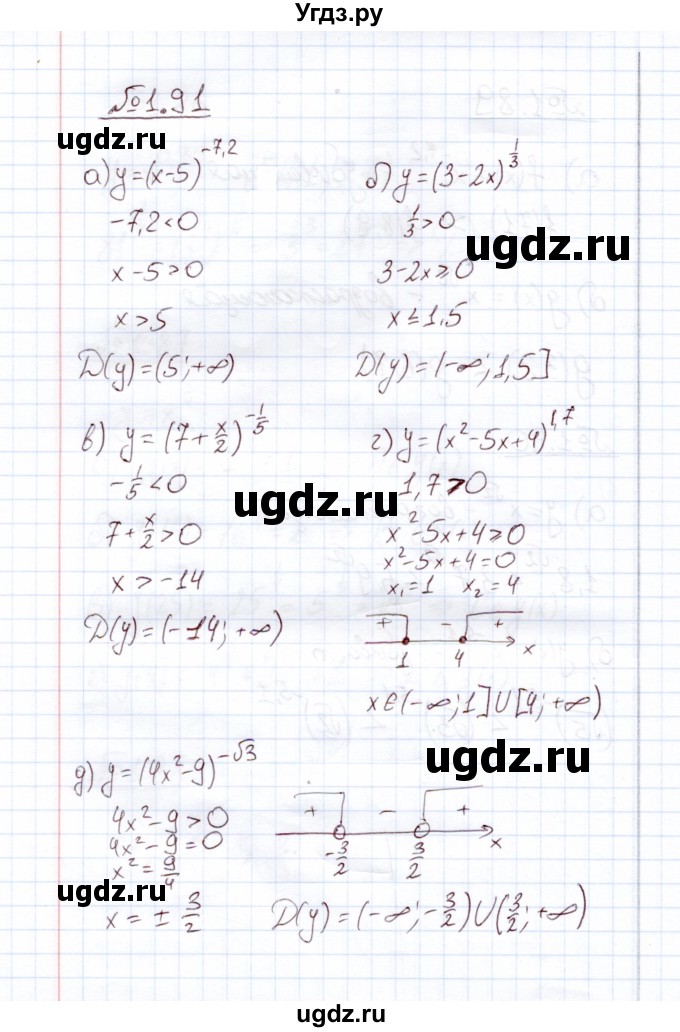 Угдз.ру
№1.91
ugdz.ru
а) y=(x-5)^{-7,2}
-7,2<0
x-5>0
x>5
D(y)=(5;+∞)
б) y=(3-2x)^{1/3}
1/3>0
ugdz.ru
3-2x≥0
x≤1,5
D(y)=(-∞;1,5]
в) y=(7+x/2)^{-1/5}
-1/5<0
ugdz.ru
7+x/2>0
x>-14
D(y)=(-14;+∞)
г) y=(x²-5x+4)^{1,7}
1,7>0
x²-5x+4≥0
x²-5x+4=0
x₁=1 x₂=4
+ - +
1 4 x
x∈(-∞;1]U[4;+∞)
ugdz.ru
д) y=(4x²-9)^{-√3}
4x²-9>0
4x²-9=0
x²=9/4
x=±3/2
+ - +
-3/2 3/2 x
ugdz.ru
D(y)=(-∞;-3/2)U(3/2;+∞)
ugdz.ru
ugdz.ru